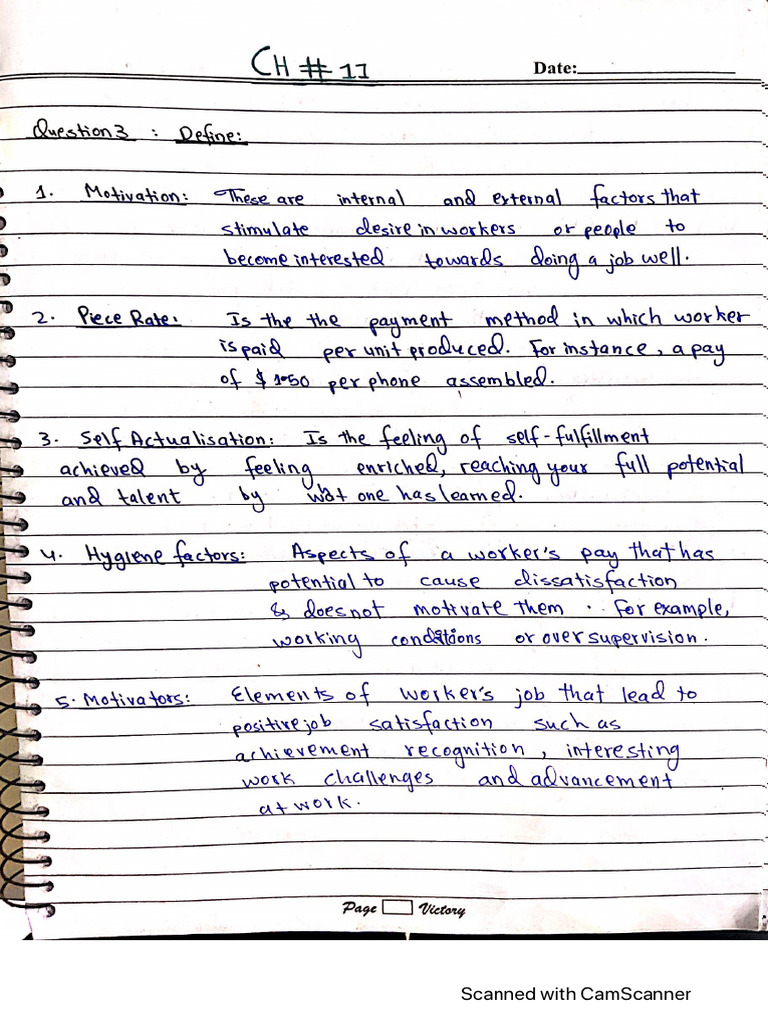 CH # 11
Date:
Question 3 : Define:
1. Motivation: These are internal and external factors that
stimulate desire in workers or people to
become interested towards doing a job well.
2. Piece Rate: Is the the payment method in which worker
is paid per unit produced. For instance, a pay
of $ 1.50 per phone assembled.
3. Self Actualisation: Is the feeling of self-fulfillment
achieved by feeling enriched, reaching your full potential
and talent by wat one has learned.
4. Hygiene factors: Aspects of a worker's pay that has
potential to cause dissatisfaction
& does not motivate them . . For example,
working conditions or over supervision.
5. Motivators: Elements of worker's job that lead to
positive job satisfaction such as
achievement recognition, interesting
work challenges and advancement
at work.
Page Victory
Scanned with CamScanner